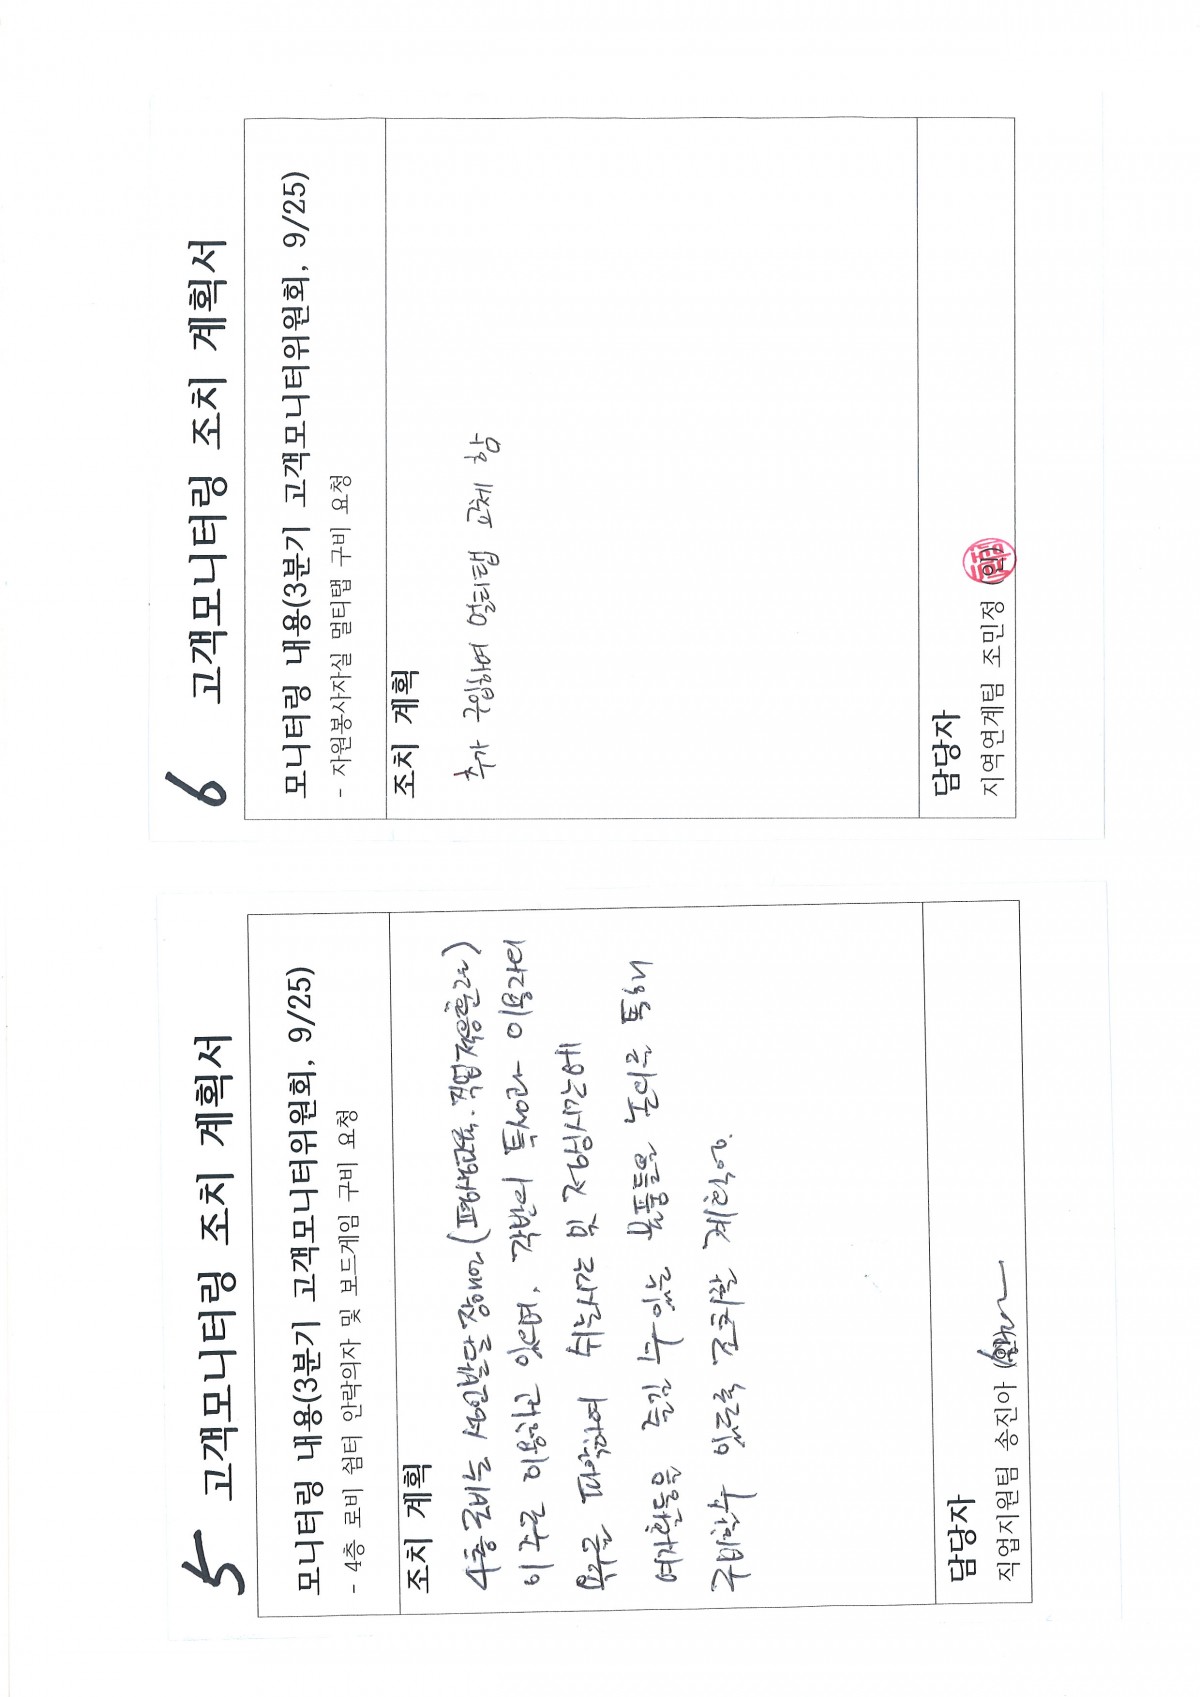 5 고객모니터링 조치 계획서
모니터링 내용(3분기 고객모니터위원회, 9/25)
- 4층 로비 쉼터 안락의자 및 보드게임 구비 요청
조치 계획
4층 로비는 성인발달장애인(평생교육, 직업적응훈련)
이 주로 이용하고 있으며, 각반의 특성과 이용자의
욕구를 파악하여 쉬는시간 및 점심시간에
여가활동을 즐길 수 있는 물품들을 논의를 통해
구비할수 있도록 조치할 계획임.
담당자
직업지원팀 송진아 (인)
6 고객모니터링 조치 계획서
모니터링 내용(3분기 고객모니터위원회, 9/25)
- 자원봉사자실 멀티탭 구비 요청
조치 계획
추가 구입하여 멀티탭 교체 함
담당자
지역연계팀 조민정 (인)